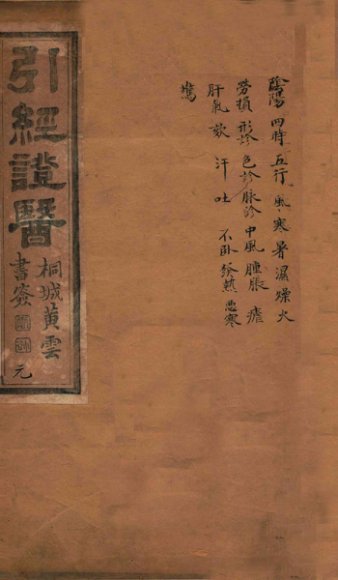 陰陽 四時 五行 風寒暑濕燥火
勞損 形診 色診 脉診 中風 腫脹 瘧
肝氣 欬 汗 吐 不卧 發熱 惡寒
引經證醫
桐城黃雲
書簽
元